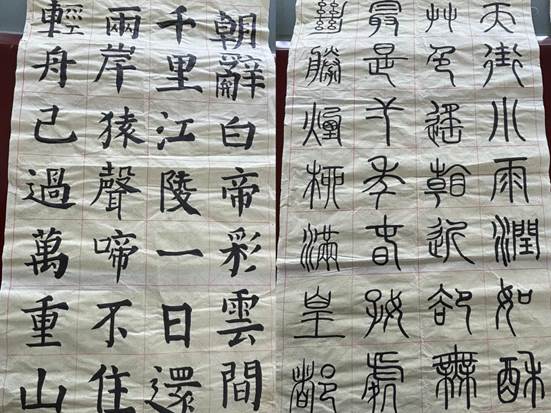 天街小雨潤如酥
艸色遙看近卻無
最是一年春好處
絕勝煙柳滿皇都
朝辭白帝彩雲間
千里江陵一日還
兩岸猿聲啼不住
輕舟已過萬重山